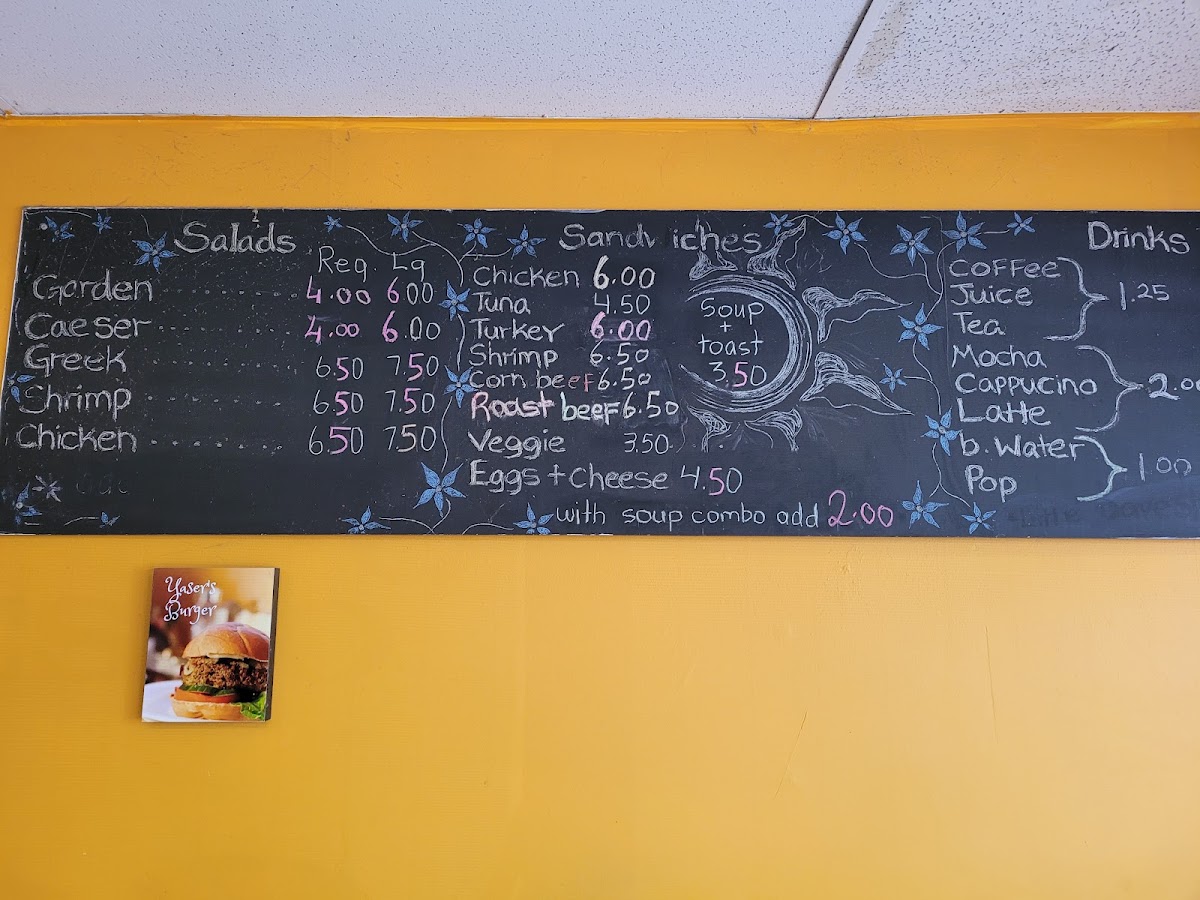 Salads
Reg. Lg
Garden 4.00 6.00
Caeser 4.00 6.00
Greek 6.50 7.50
Shrimp 6.50 7.50
Chicken 6.50 7.50
Sandwiches
Chicken 6.00
Tuna 4.50
Turkey 6.00
Shrimp 6.50
Corn beef 6.50
Roast beef 6.50
Veggie 3.50
Eggs + Cheese 4.50
with soup combo add 2.00
Soup
+
toast
3.50
Drinks
Coffee
Juice 1.25
Tea
Mocha
Cappucino 2.00
Latte
b. Water
Pop 1.00
Yaser's
Burger